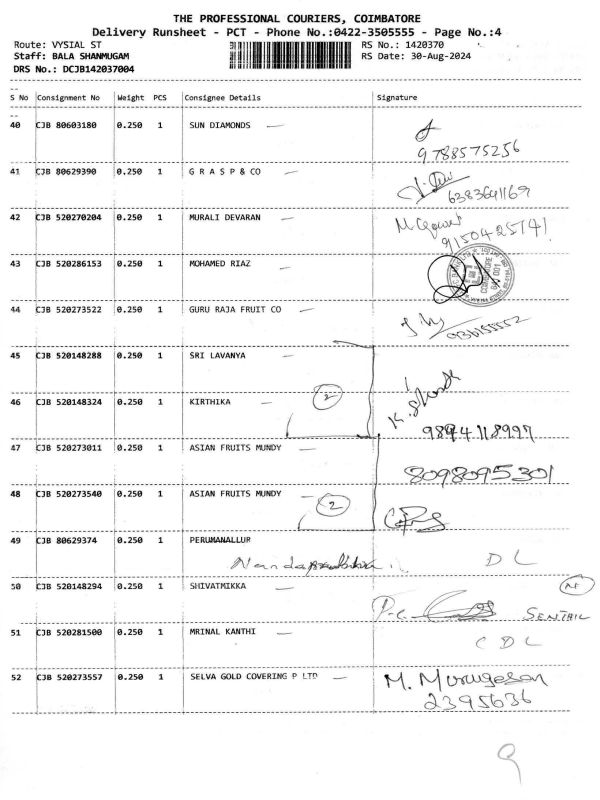 THE PROFESSIONAL COURIERS, COIMBATORE
Delivery Runsheet - PCT - Phone No.:0422-3505555 - Page No.:4
Route: VYSIAL ST RS No.: 1420370
Staff: BALA SHANMUGAM RS Date: 30-Aug-2024
DRS No.: DCJB142037004
S No Consignment No Weight PCS Consignee Details Signature
40 CJB 80603180 0.250 1 SUN DIAMONDS
9788575256
41 CJB 80629390 0.250 1 G R A S P & CO
6383641169
42 CJB 520270204 0.250 1 MURALI DEVARAN
9150425741
43 CJB 520286153 0.250 1 MOHAMED RIAZ
44 CJB 520273522 0.250 1 GURU RAJA FRUIT CO
45 CJB 520148288 0.250 1 SRI LAVANYA
46 CJB 520148324 0.250 1 KIRTHIKA 2
47 CJB 520273011 0.250 1 ASIAN FRUITS MUNDY
8098095301
48 CJB 520273540 0.250 1 ASIAN FRUITS MUNDY 2
49 CJB 80629374 0.250 1 PERUMANALLUR
DL
50 CJB 520148294 0.250 1 SHIVATMIKKA
SENTHIL
51 CJB 520281500 0.250 1 MRINAL KANTHI
CDL
52 CJB 520273557 0.250 1 SELVA GOLD COVERING P LTD
M. Murugesan
2395636
9